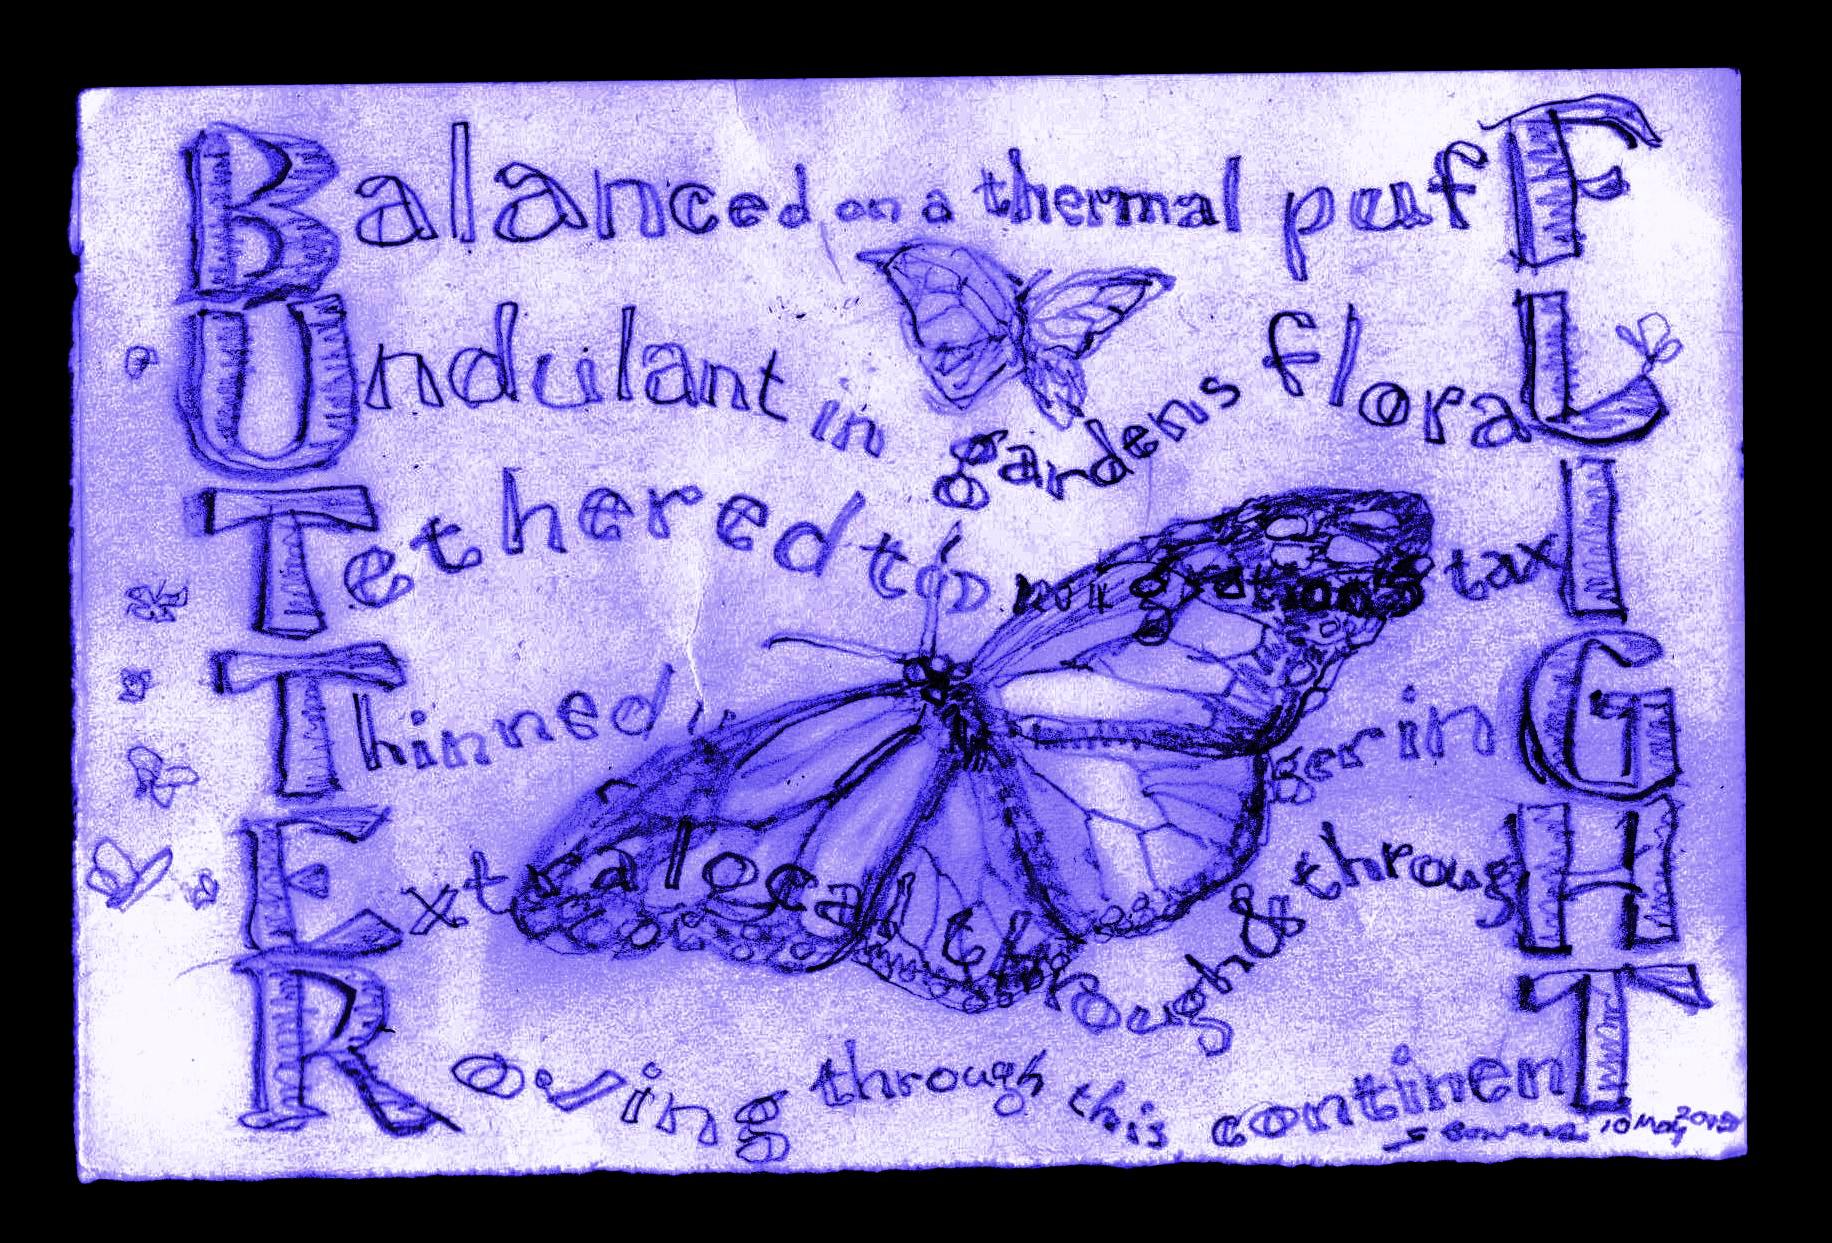 Balanced on a thermal pufF
Undulant in gardens floraL
Tethered to migrations taxI
Thinned gerinG
Extralocal through & througH
Roving through this continenT
10 May